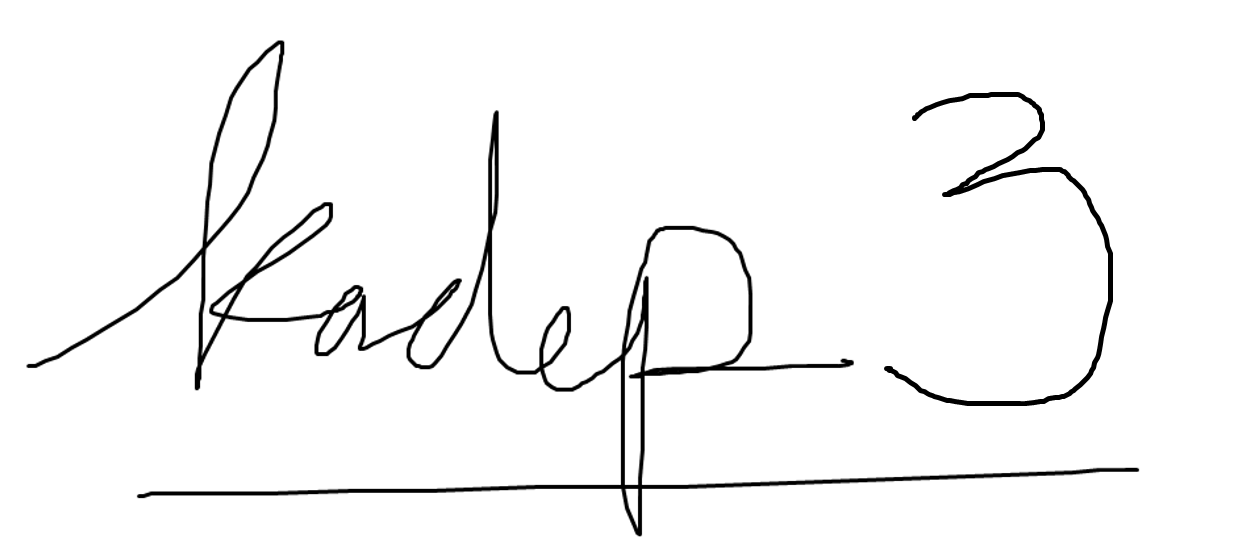 kadep 3